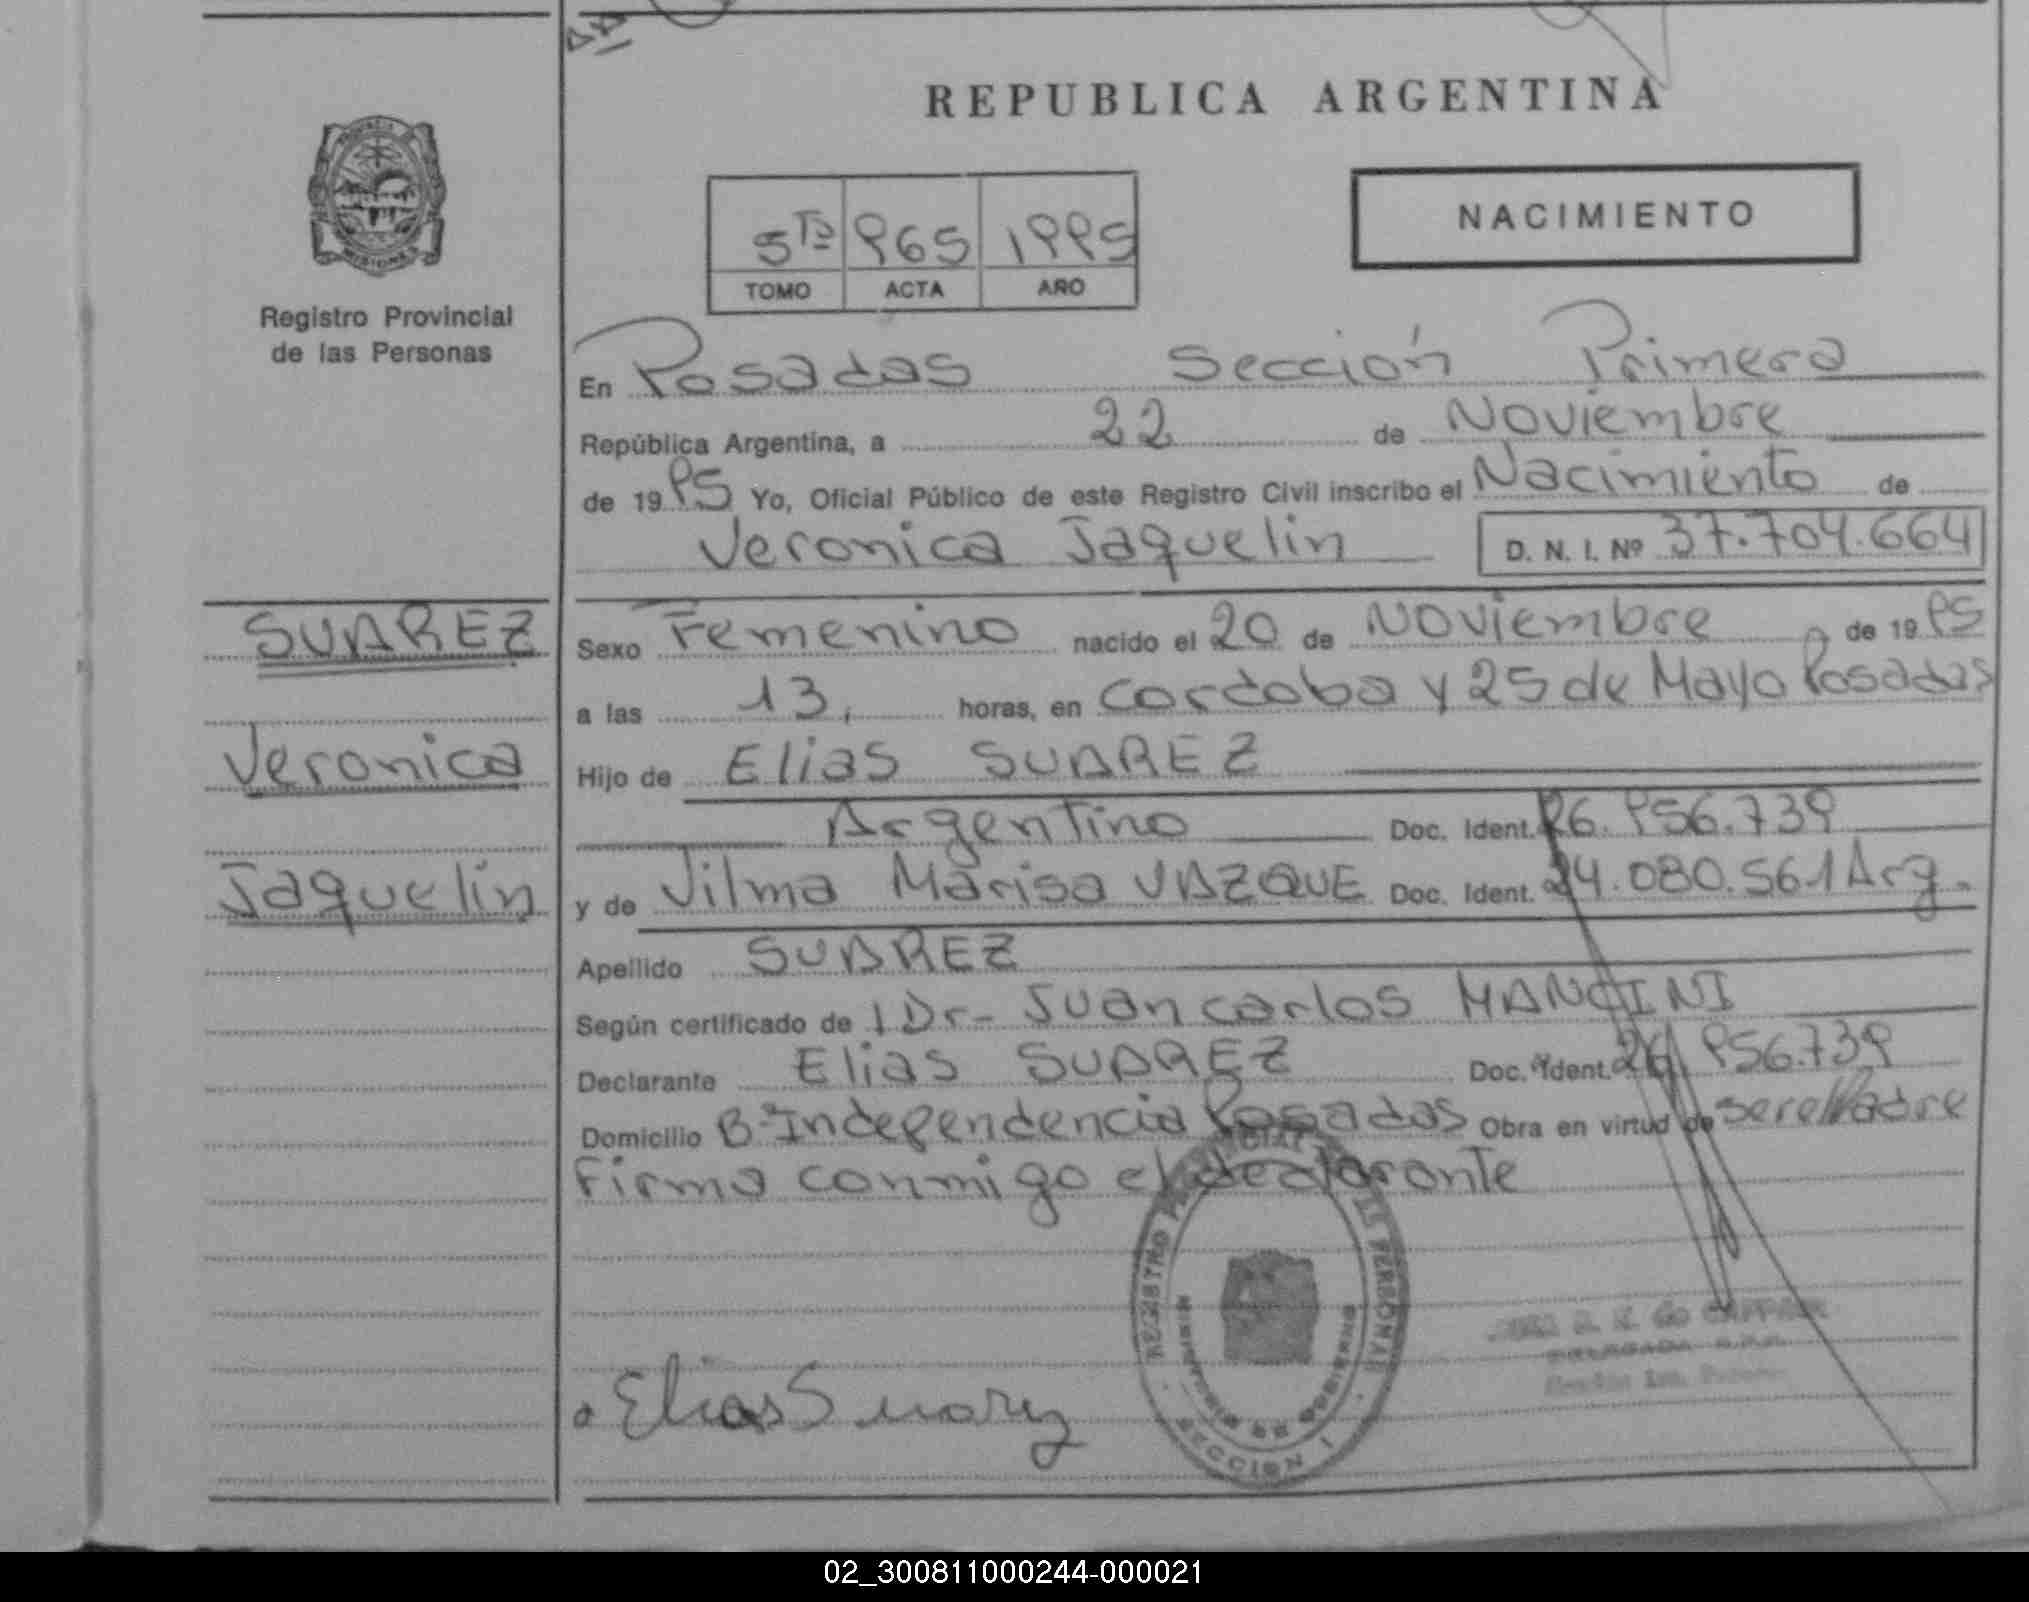 REPUBLICA ARGENTINA
PROVINCIA
MISIONES
Registro Provincial
de las Personas
5to 965 1995
TOMO ACTA AÑO
NACIMIENTO
En Posadas Sección Primera
República Argentina, a 22 de Noviembre
de 1995 Yo, Oficial Público de este Registro Civil inscribo el Nacimiento de
Veronica Jaquelin D. N. I. Nº 37.704.664
SUAREZ
Veronica
Jaquelin
Sexo Femenino nacido el 20 de Noviembre de 1995
a las 13, horas, en Cordoba y 25 de Mayo Posadas
Hijo de Elias SUAREZ
Argentino Doc. Ident. 26.956.739
y de Vilma Marisa VAZQUE Doc. Ident. 24.080.561 Arg.
Apellido SUAREZ
Según certificado de 1 Dr- Juan carlos MANCINI
Declarante Elias SUAREZ Doc. Ident. 26.956.739
Domicilio Bº Independencia Posadas Obra en virtud de ser el Padre
Firma conmigo el declarante
REGISTRO PROVINCIAL DE LAS PERSONAS
MINISTERIO DE GOBIERNO
SECCION I
Elias Suarez
DELEGADA
02_300811000244-000021